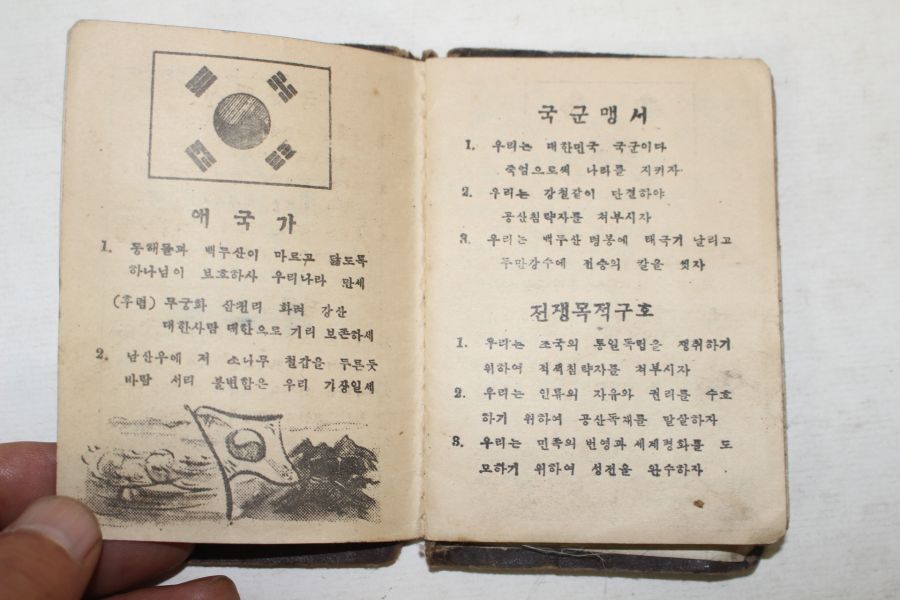 애국가
1. 동해물과 백두산이 마르고 닳도록
하나님이 보호하사 우리나라 만세
(후렴) 무궁화 삼천리 화려 강산
대한사람 대한으로 기리 보존하세
2. 남산우에 저 소나무 철갑을 두른듯
바람 서리 불변함은 우리 기상일세
국군맹서
1. 우리는 대한민국 국군이다
죽엄으로써 나라를 지키자
2. 우리는 강철같이 단결하야
공산침략자를 처부시자
3. 우리는 백두산 영봉에 태극기 날리고
두만강수에 전승의 칼을 씻자
전쟁목적구호
1. 우리는 조국의 통일독립을 쟁취하기
위하여 적색침략자를 처부시자
2. 우리는 인류의 자유와 권리를 수호
하기 위하여 공산독재를 말살하자
3. 우리는 민족의 번영과 세계평화를 도
모하기 위하여 성전을 완수하자